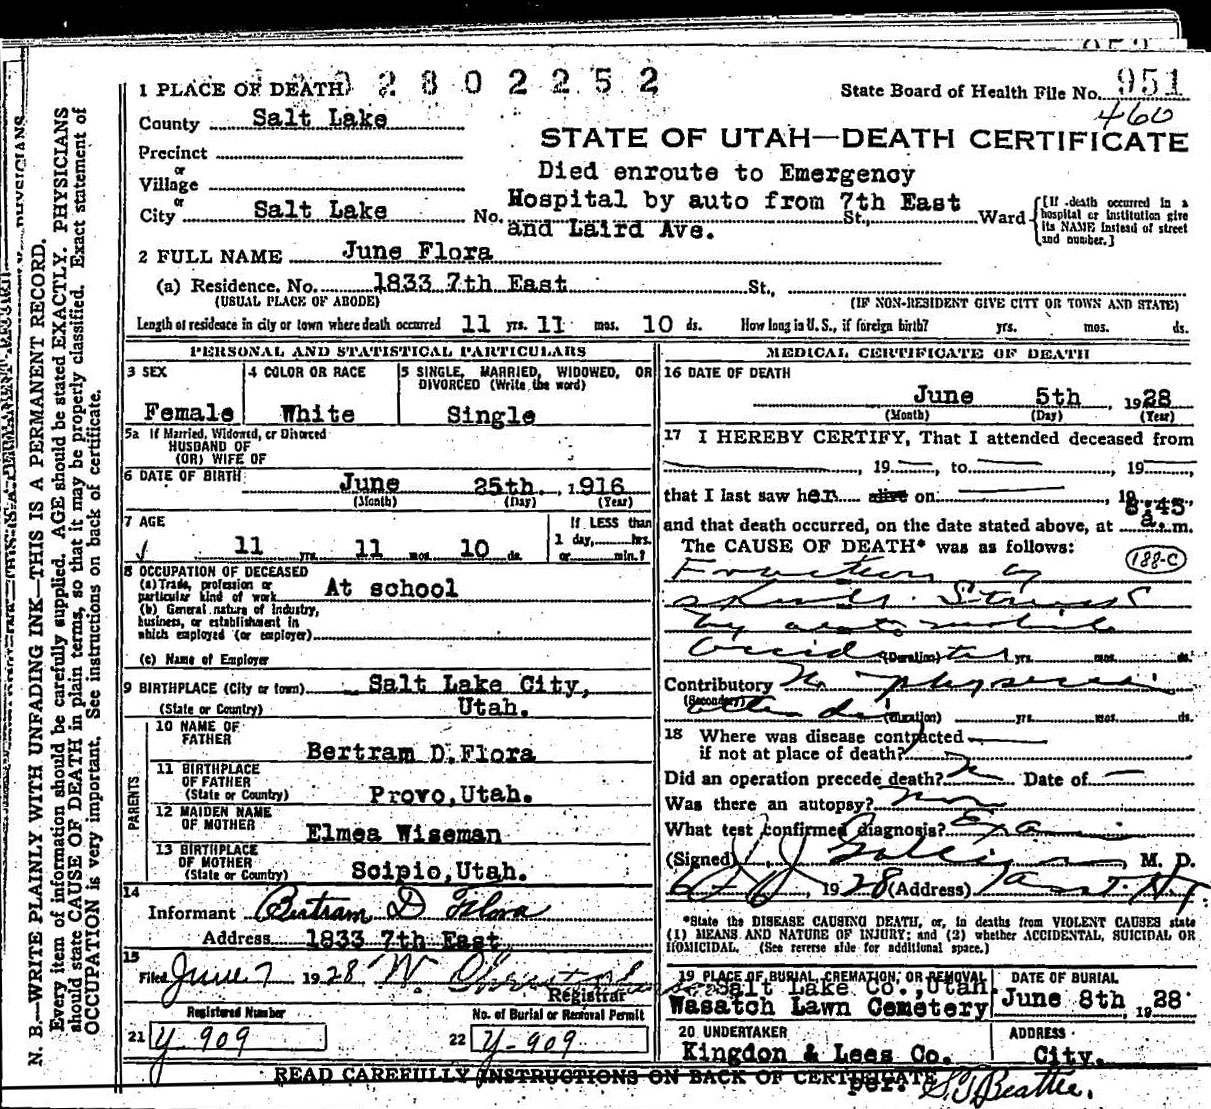 951
1 PLACE OF DEATH 2 8 0 2 2 5 2
State Board of Health File No. 951
460
County Salt Lake
STATE OF UTAH—DEATH CERTIFICATE
Precinct
or
Village
or
City Salt Lake No. Died enroute to Emergency
Hospital by auto from 7th East St., Ward
and Laird Ave.
[If death occurred in a
hospital or institution give
its NAME instead of street
and number.]
2 FULL NAME June Flora
(a) Residence. No. 1833 7th East St.,
(USUAL PLACE OF ABODE) (IF NON-RESIDENT GIVE CITY OR TOWN AND STATE)
Length of residence in city or town where death occurred 11 yrs. 11 mos. 10 ds. How long in U. S., if foreign birth? yrs. mos. ds.
PERSONAL AND STATISTICAL PARTICULARS
3 SEX
Female
4 COLOR OR RACE
White
5 SINGLE, MARRIED, WIDOWED, OR
DIVORCED (Write the word)
Single
5a If Married, Widowed, or Divorced
HUSBAND OF
(OR) WIFE OF
6 DATE OF BIRTH June 25th, 1916
(Month) (Day) (Year)
7 AGE
11 yrs. 11 mos. 10 ds.
If LESS than
1 day, hrs.
or min.?
8 OCCUPATION OF DECEASED
(a) Trade, profession or
particular kind of work At school
(b) General nature of industry,
business, or establishment in
which employed (or employer)
(c) Name of Employer
9 BIRTHPLACE (City or town) Salt Lake City,
(State or Country) Utah.
PARENTS
10 NAME OF
FATHER
Bertram D. Flora
11 BIRTHPLACE
OF FATHER
(State or Country) Provo, Utah.
12 MAIDEN NAME
OF MOTHER
Elmea Wiseman
13 BIRTHPLACE
OF MOTHER
(State or Country) Scipio, Utah.
14
Informant Bertram D Flora
Address 1833 7th East
15
Filed June 7 1928
Registrar
Registered Number
21 y-909
No. of Burial or Removal Permit
22 y-909
MEDICAL CERTIFICATE OF DEATH
16 DATE OF DEATH
June 5th, 1928
(Month) (Day) (Year)
17 I HEREBY CERTIFY, That I attended deceased from
, 19 , to , 19 ,
that I last saw her alive on , 19
8:45
and that death occurred, on the date stated above, at a. m.
The CAUSE OF DEATH* was as follows:
188-C
Fracture of
skull. Struck
by automobile
Accident (Duration) yrs. mos. ds.
Contributory No physician
(Secondary) (Duration) yrs. mos. ds.
18 Where was disease contracted
if not at place of death?
Did an operation precede death? Date of
Was there an autopsy?
What test confirmed diagnosis?
(Signed) M. D.
1928 (Address)
*State the DISEASE CAUSING DEATH, or, in deaths from VIOLENT CAUSES state
(1) MEANS AND NATURE OF INJURY; and (2) whether ACCIDENTAL, SUICIDAL OR
HOMICIDAL. (See reverse side for additional space.)
19 PLACE OF BURIAL, CREMATION, OR REMOVAL
Salt Lake Co., Utah.
Wasatch Lawn Cemetery
DATE OF BURIAL
June 8th, 1928
20 UNDERTAKER
Kingdon & Lees Co.
ADDRESS
City.
READ CAREFULLY INSTRUCTIONS ON BACK OF CERTIFICATE
per. S.T. Beattie.
N. B.—WRITE PLAINLY WITH UNFADING INK—THIS IS A PERMANENT RECORD.
Every item of information should be carefully supplied. AGE should be stated EXACTLY. PHYSICIANS
should state CAUSE OF DEATH in plain terms, so that it may be properly classified. Exact statement of
OCCUPATION is very important. See instructions on back of certificate.